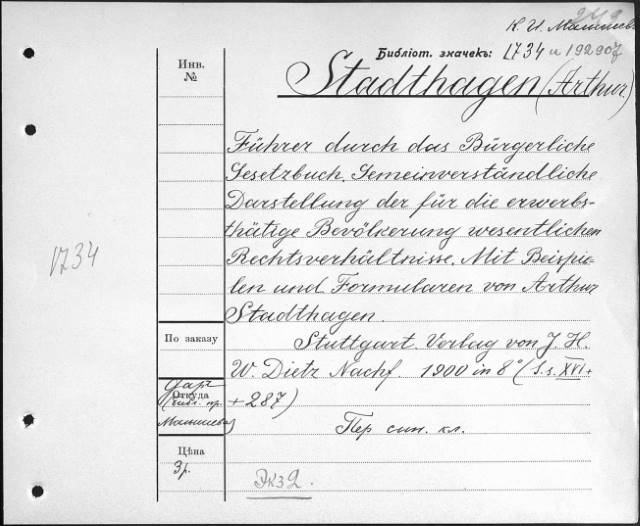 242
К. И. Малышев
Библіот. значекъ: 1734 и 192907
Инв.
№
Stadthagen (Arthur)
Führer durch das Bürgerliche
Gesetzbuch. Gemeinverständliche
Darstellung der für die erwerbs-
thätige Bevölkerung wesentlichen
Rechtsverhältnisse. Mit Beispie-
len und Formularen von Arthur
Stadthagen.
1734
По заказу
Stuttgart. Verlag von J. H.
W. Dietz Nachf. 1900 in 8° (S.s. XVI +
+ 287)
Даръ
Откуда
(библ. пр.
Малышева)
Пер син. кл.
Цѣна
3р.
Экз 2.